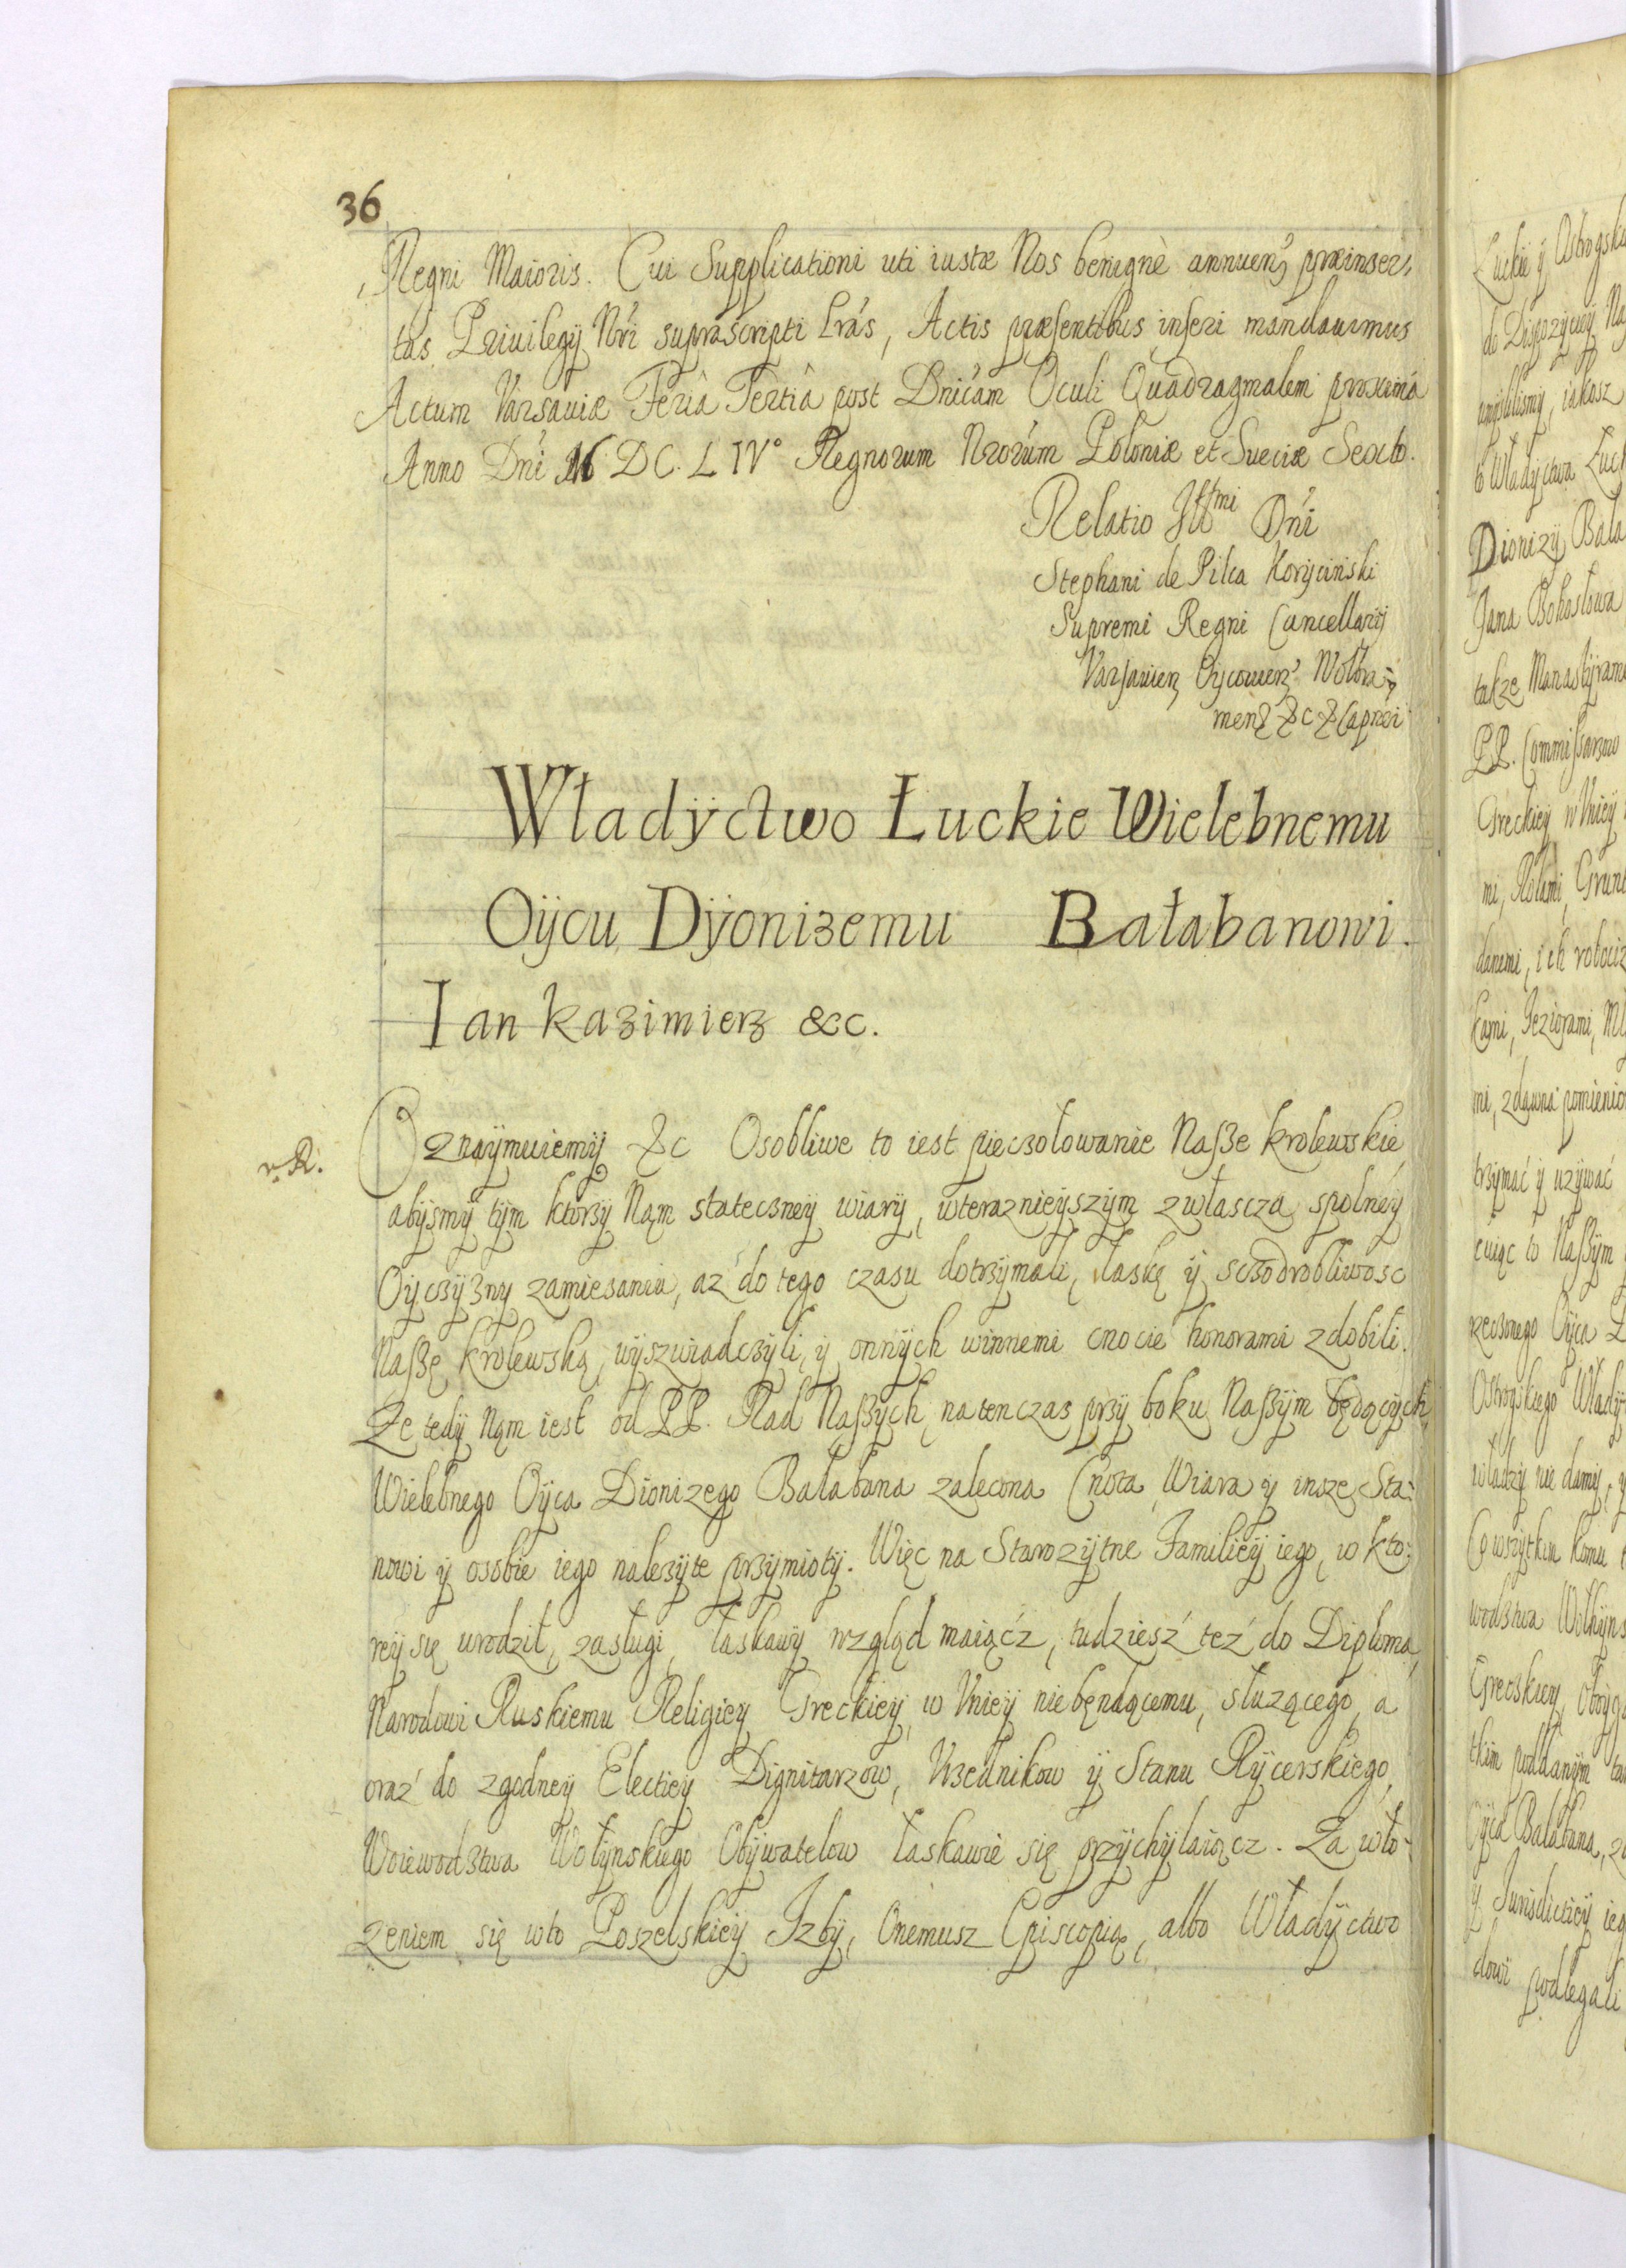 36
Regni Maioris. Cui Supplicationi uti iustæ Nos benignè annuen, præinser,
tas Priuilegÿ Nri suprascripti Lras, Actis præsentibus inseri mandauimus
Actum Varsauiæ Feria Tertia post Dnicam Oculi Quadragmalem proxima
Anno Dni M DC. L IV° Regnorum Nrorum Poloniæ et Sueciæ Sexto.
Relatio Illmi Dni
Stephani de Pilca Korÿcinski
Supremi Regni Cancellarÿ
Varsauien Oÿcouien Wolbra-
men &c & Capnei
Władÿctwo Łuckie Wielebnemu
Oÿcu Dÿonizemu Bałabanowi.
Ian kazimierz &c.
r. R.
Oznaÿmuiemÿ &c Osobliwe to iest pieczołowanie Naße krolewskie
abÿsmÿ tÿm ktorzÿ Nąm stateczneÿ wiarÿ, wteraznieÿszÿm zwłascza spolneÿ
Oÿczÿznÿ zamiesaniu, az do tego czasu dotrzÿmali, łaskę ÿ sczodrobliwosc
Naßę krolewską, wÿszwiadczÿli, ÿ onnÿch winnemi cnocie honorami zdobili.
Ze tedÿ Nąm iest od PP. Rad Naßÿch, natenczas przÿ boku Naßÿm będącÿch,
Wielebnego Oÿca Dionizego Bałabana zalecona Cnota, Wiara ÿ insze Sta-
nowi ÿ osobie iego nalezÿte przÿmiotÿ. Więc na Starozÿtne Familieÿ iego, w kto-
reÿ się urodzil, zasługi, łaskawÿ wzgląd maiącz, tudziesz tez do Diploma,
Narodowi Ruskiemu Religieÿ Greckieÿ, w Vnieÿ niebęndącemu, słuzącego, a
oraz do zgodneÿ Electieÿ Dignitarzow, Vrzednikow ÿ Stanu Rÿcerskiego,
Woiewodztwa Wołÿnskiego Obÿwatelow łaskawie się przÿchÿlaiącz. Za wło-
zeniem się wto Poszelskieÿ Izbÿ, Onemusz Episcopią, albo Władÿctwo
Łuckie ÿ Ostrogsk
do Disposÿcieÿ Na
umÿslilismÿ, iakosz
o Władÿctwa Łuc
Dionizÿ Bała
Jana Bohosłowa
takze Manastÿram
PP. Commissarzow
Greckieÿ w Vnieÿ
mi, Rolami, Grunt
danemi, ich robociz
kami, Jeziorami, Mł
mi, zdawna pomienio
trzÿmać ÿ uzÿwać
cuiąc to Naßÿm
rzeczonego Oÿca D
Ostrogskiego Władÿ
władzÿ nie damÿ, ÿ
Co wszÿtkim komu
wodztwa Wołhÿns
Grecskieÿ, Obÿwa
tkim poddanÿm ta
Oÿca Bałabana, z
ÿ Jurisdictieÿ ieg
dowi podlegali